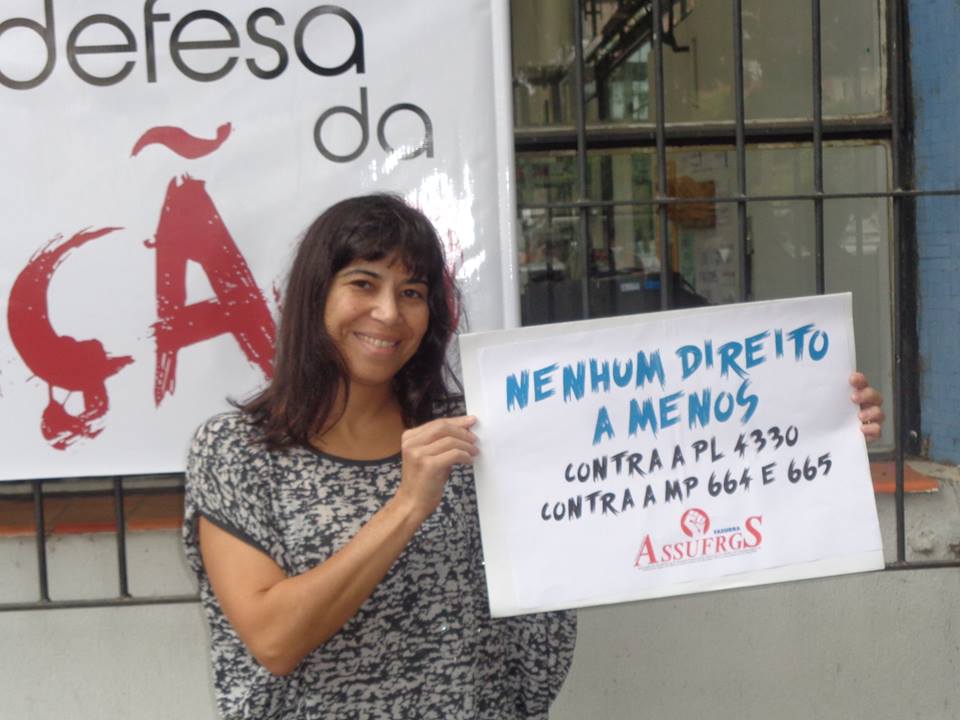 defesa
da
ÇÃ
NENHUM DIREITO
A MENOS
CONTRA A PL 4330
CONTRA A MP 664 E 665
FASUBRA
ASSUFRGS